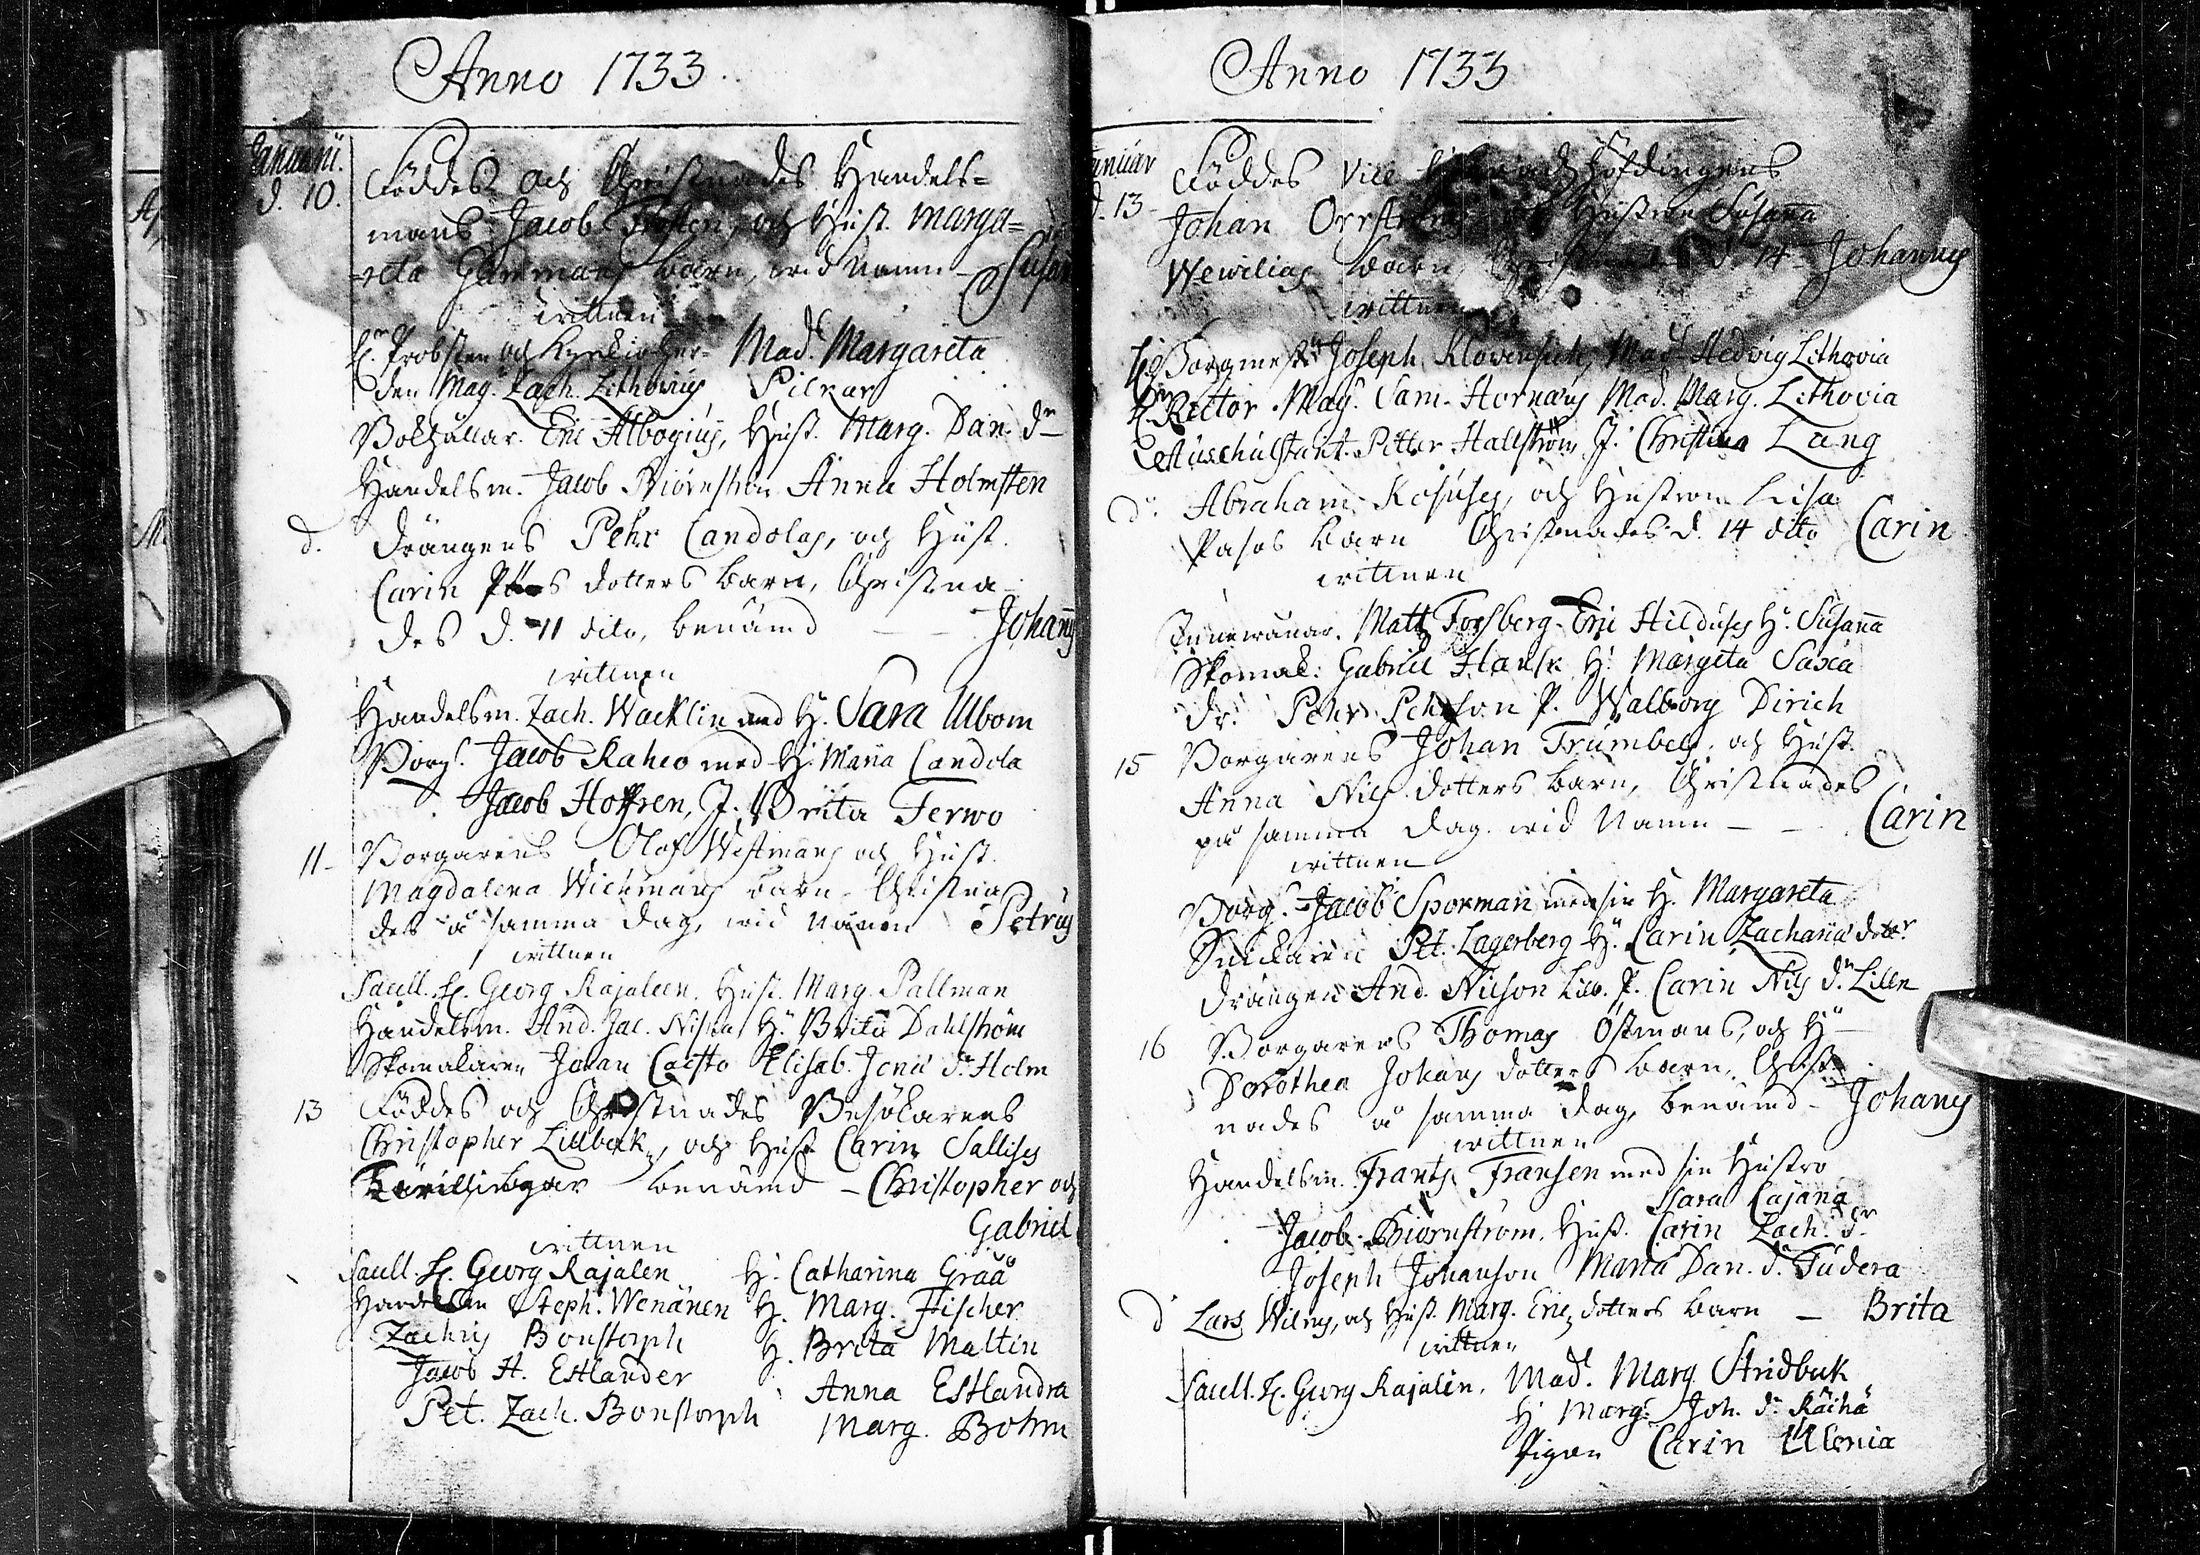 Anno 1733.
Januarii.
d. 10. Föddes och Christnades Handels=
mans Jacob Frosten, och Hust. Marga=
reta Gammals barn, wid namn - Susan
wittnen
H. Probsten och Kyrckioher- Mad. Margareta
den Mag. Zach. Lithovius Pilear
Bokhållar. Eric Albogius, Hust. Marg. Dan. dr
Handelsm. Jacob Biörnström Anna Holmsten
d. Drängens Pehr Candolas, och Hust.
Carin dotters barn, Christna
des d. 11 dito, benämd - Johanes
wittnen
Handelsm. Zach. Wacklin med H. Sara Ulbom
Borg. Jacob Raheo med H. Maria Candola
Jacob Hoffren, J. Brita Terwo
11- Borgarens Olof Westmans och Hust.
Magdalena Wichmans barn Christna
des å samma dag, wid namn Petrus
wittnen
Saull. H. Georg Kajaleen. Hust. Marg. Pallman
Handelsm. And. Jac. Niska H. Brita Dahlström
Skomakaren Johan Caisto Elisab. Jona dr Holm
13 Föddes och Christnades Besökarens
Christopher Lillbäck, och Hust Carin Sallises
Twillingar benämd - Christopher och
Gabriel
wittnen
Saull. H. Georg Kajalen H. Catharina Gråå
Handelsm Steph. Wenänen H. Marg. Fischer
Zachris Bonstorph H. Brita Maltin
Jacob H. Estlander Anna Estlandra
Pet. Zach. Bonstorph Marg. Bohm
Anno 1733
Januar
d. 13- Föddes Vice Häradzhöfdingens
Johan Hustrus Susanna
Wewilias barn d. 14 - Johannes
wittnen
H. Borgmest. Joseph Mad. Hedvig Lithovia
H. Rector Mag. Sam. Hornæus Mad. Marg. Lithovia
Petter Hallström J. Christina Lang
d. Abraham Kosuses, och Hustrun Lisa
Pasos barn Christnades d. 14 dito Carin
wittnen
Matts Forsberg Eric Hilduses H. Susanna
Skomak. Gabriel Hansk H. Margeta Saxa
dr. Pehr Pehrson P. Walborg Dirich
15 Borgarens Johan Trumbels, och Hust.
Anna Nils dotters barn, Christnades
på samma dag wid namn - - Carin
wittnen
Borg. Jacob Sporman med sin H. Margareta
Pet. Lagerberg H. Carin Zacharia dotter
Drängen And. Nilson Lill. P. Carin Nils dr Lilla
16 Borgarens Thomas Östmans, och H
Dorothea Johans dotters barn, Christ
nades å samma dag, benämd - Johanes
wittnen
Handelsm. Frants Fransen med sin Hustro
Sara Cajana
Jacob Biörnström, Hust. Carin Zach. dr
Joseph Johanson Maria Dan. dr Tudera
d Lars och Hust. Marg. Eric dotters barn - Brita
wittnen
Saull. H. Georg Kajalén. Mad. Marg. Stridbäck
H. Marg. Joh. dr Räihä
Pigan Carin Ulenia